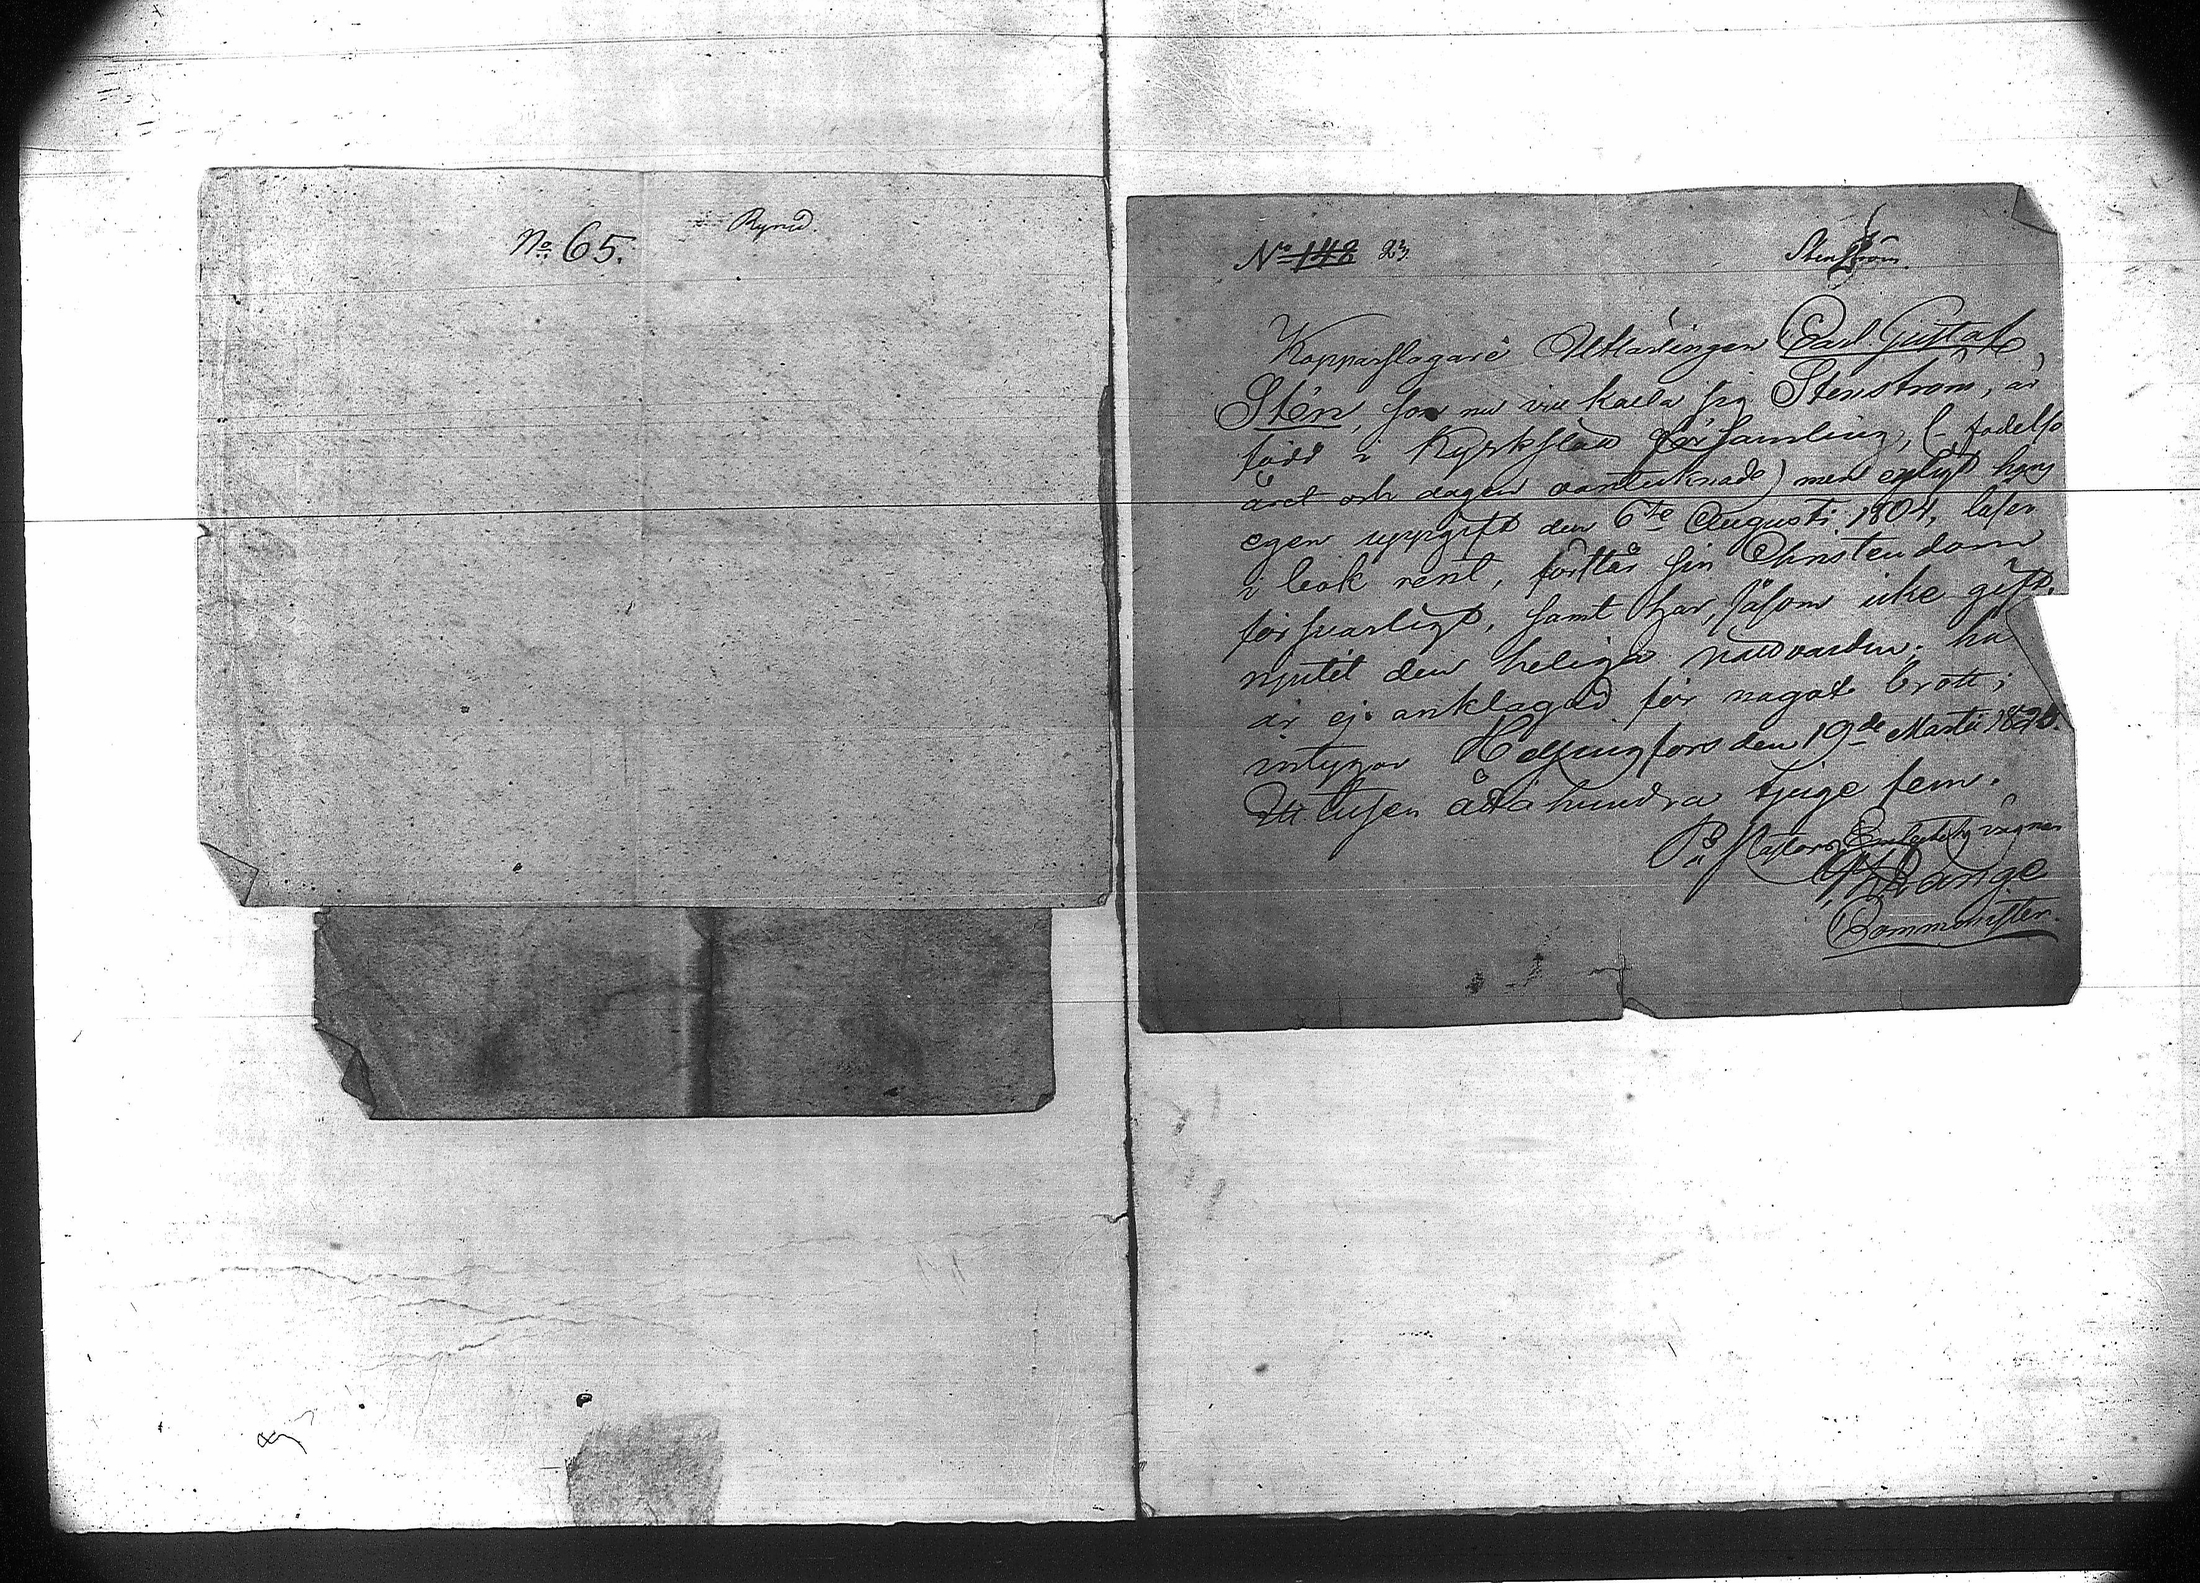 No 65.
Rynd.
No 148 23
Stenström.
Kopparslagare Utlärlingen Carl Gustaf
Stén, som nu vill kalla sig Stenström, är
född i Kyrkslätt församling, (födelse
året och dagen oantecknade) men enligt hans
egen uppgift den 6te Augusti 1804, läser
i bok rent, förstår sin Christendom
försvarligt, samt har, såsom icke gift,
njutit den heliga nattvarden; han
är ej anklagad för något brott;
intygar Helsingfors den 19de Martii 1825.
Ett tusen åtta hundra tjuge fem.
På Pastors Embetets vägnar
Crange
Comminister.